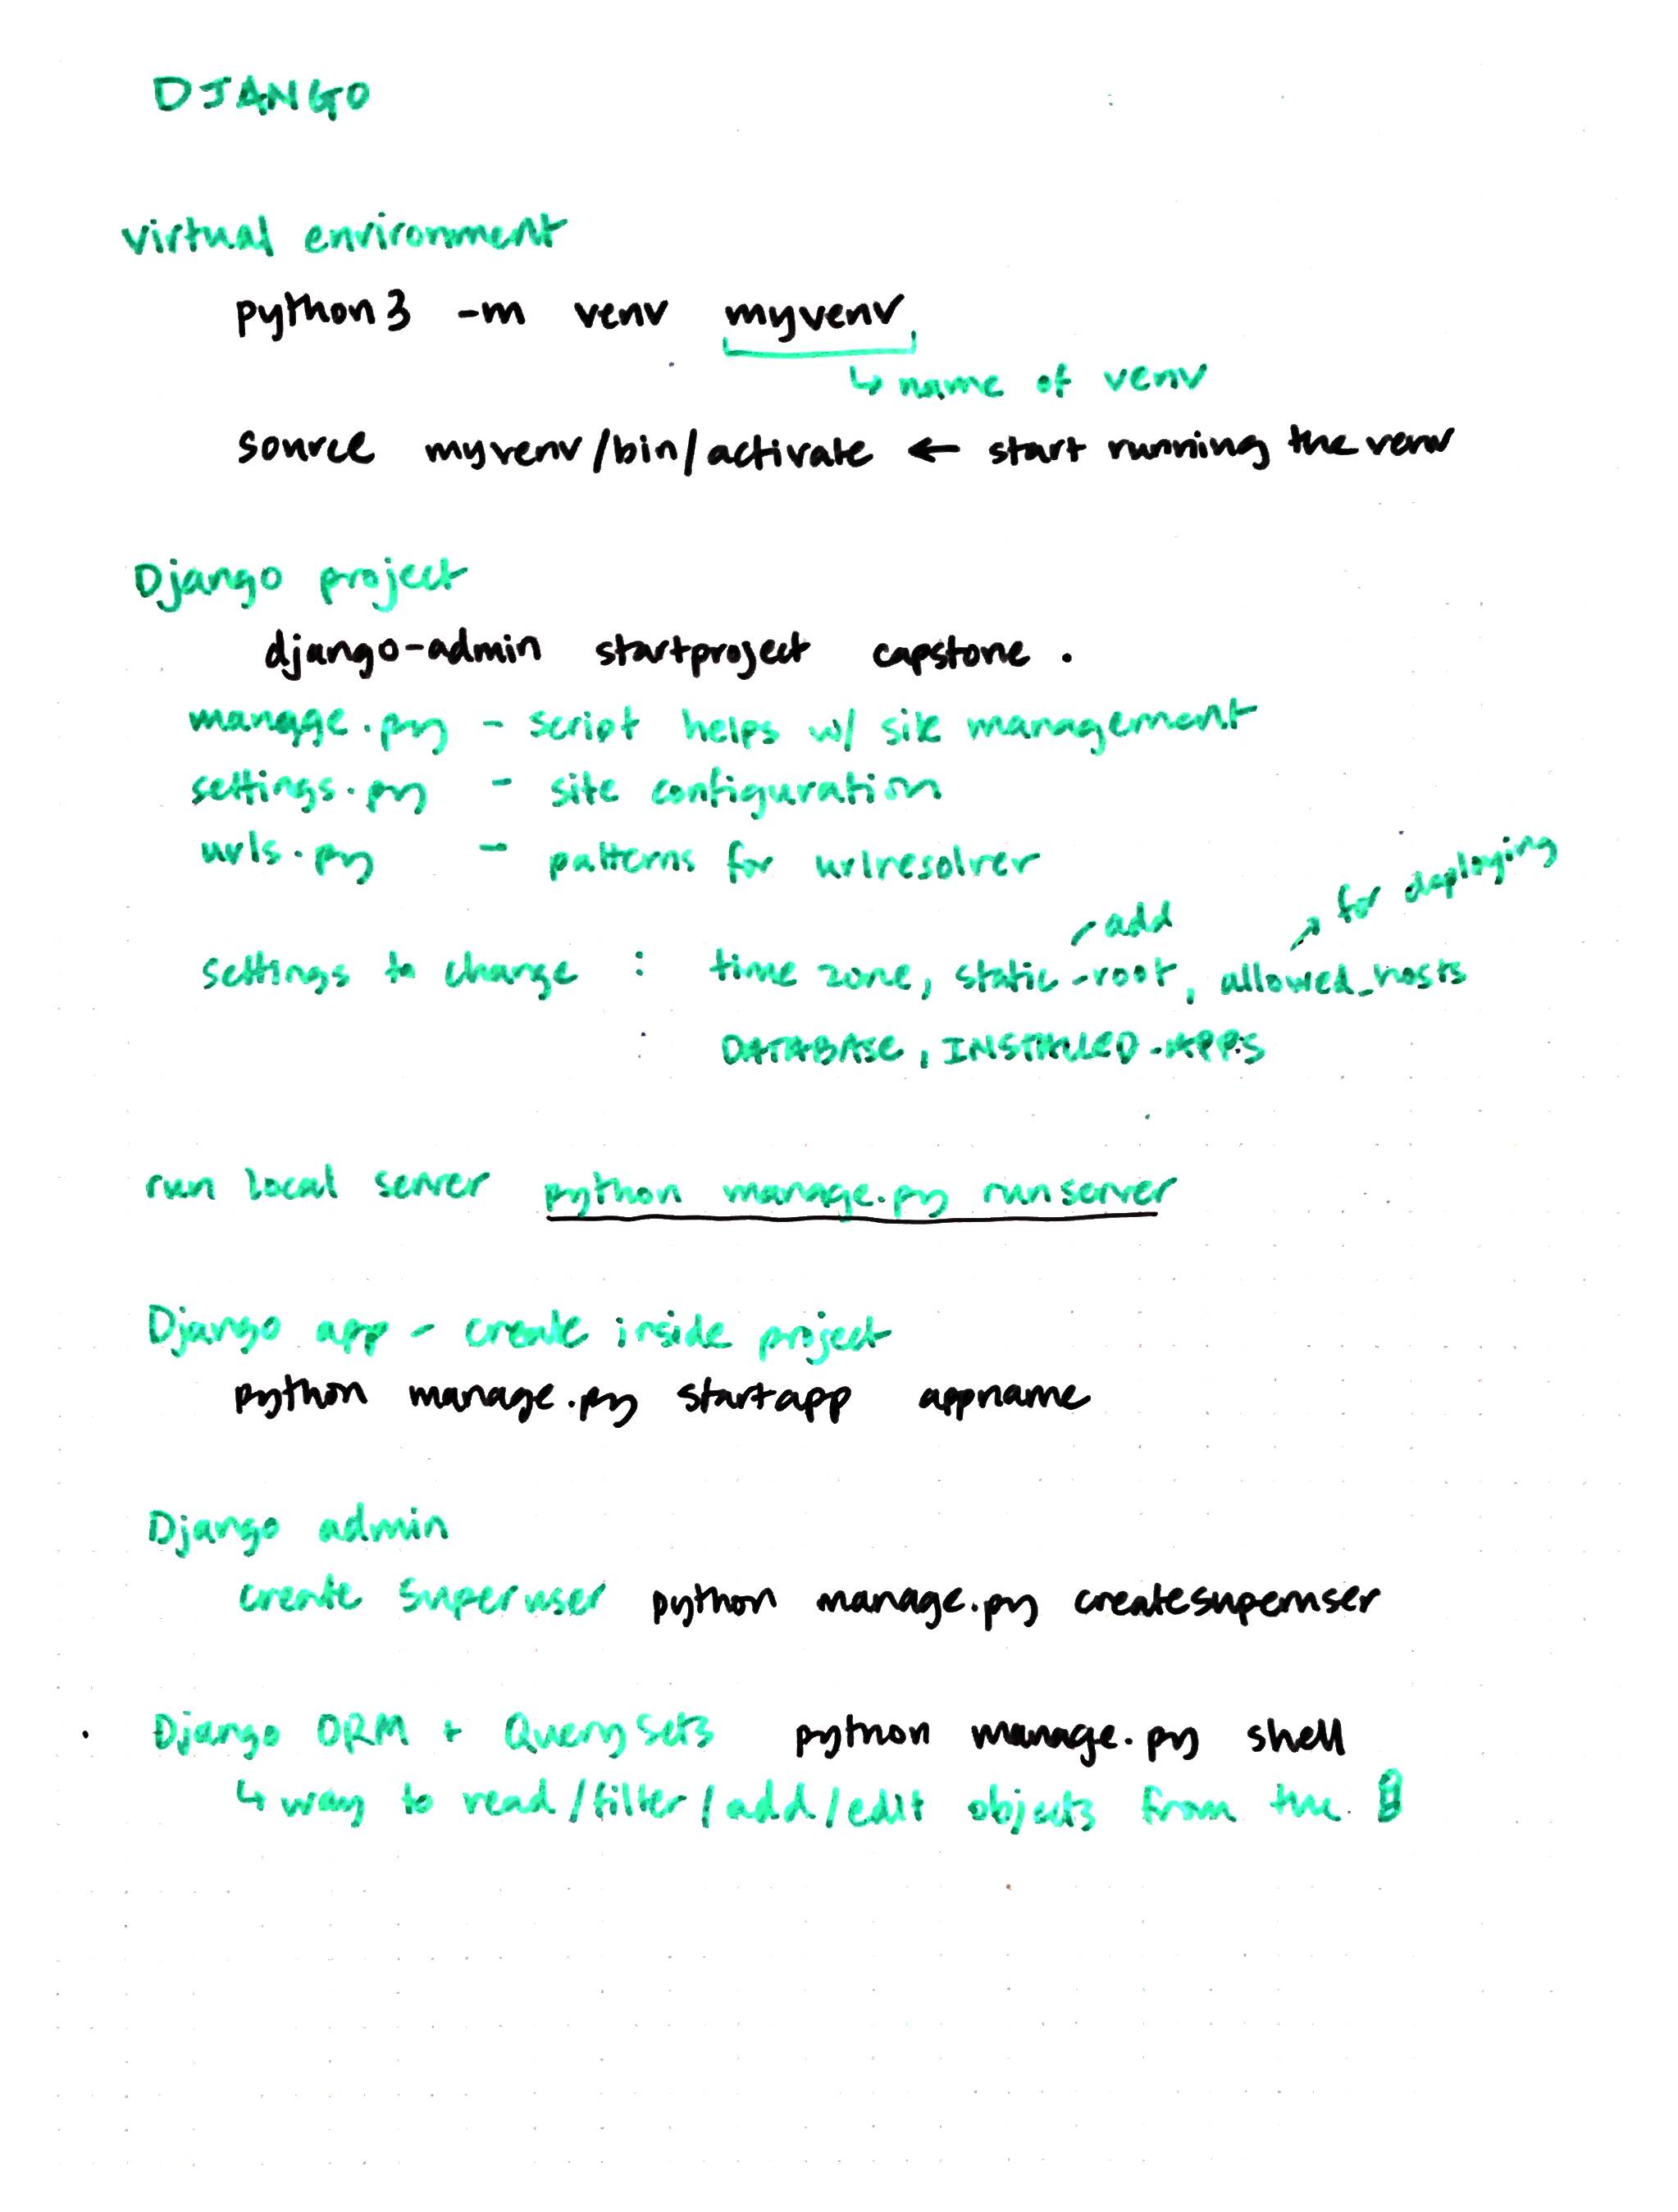 DJANGO
virtual environment
python3 -m venv myvenv
↳ name of venv
source myvenv/bin/activate ← start running the venv
Django project
django-admin startproject capstone .
manage.py - script helps w/ site management
settings.py - site configuration
urls.py - patterns for urlresolver
add
for deploying
settings to change : time zone, static-root, allowed_hosts
: DATABASE, INSTALLED-APPS
run local server python manage.py runserver
Django app - create inside project
python manage.py startapp appname
Django admin
create superuser python manage.py createsuperuser
Django ORM + QuerySets python manage.py shell
↳ way to read/filter/add/edit objects from the